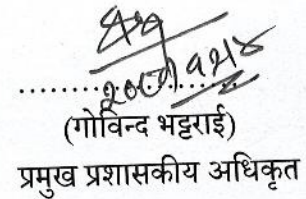 (गोविन्द भट्टराई)
प्रमुख प्रशासकीय अधिकृत